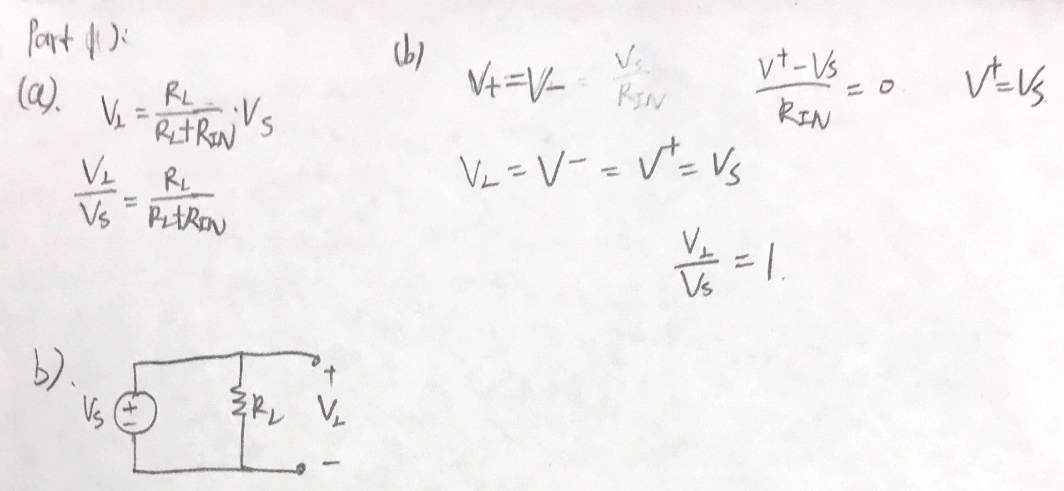 Part (1):
(a). V_L = R_L / (R_L+R_IN) · V_S
V_L / V_S = R_L / (R_L+R_IN)
(b) V+=V- = V_S / R_IN (V^+-V_S) / R_IN = 0 V^+=V_S.
V_L = V^- = V^+ = V_S
V_L / V_S = 1.
b).
V_S + - R_L + V_L -